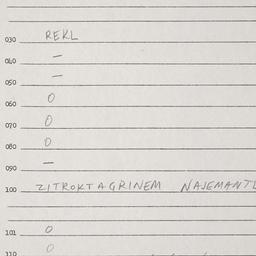 030 REKL
040 —
050 —
060 0
070 0
080 0
090 —
100 ZITROKTAGRINEM NAJEMANTL
101 0
110 0